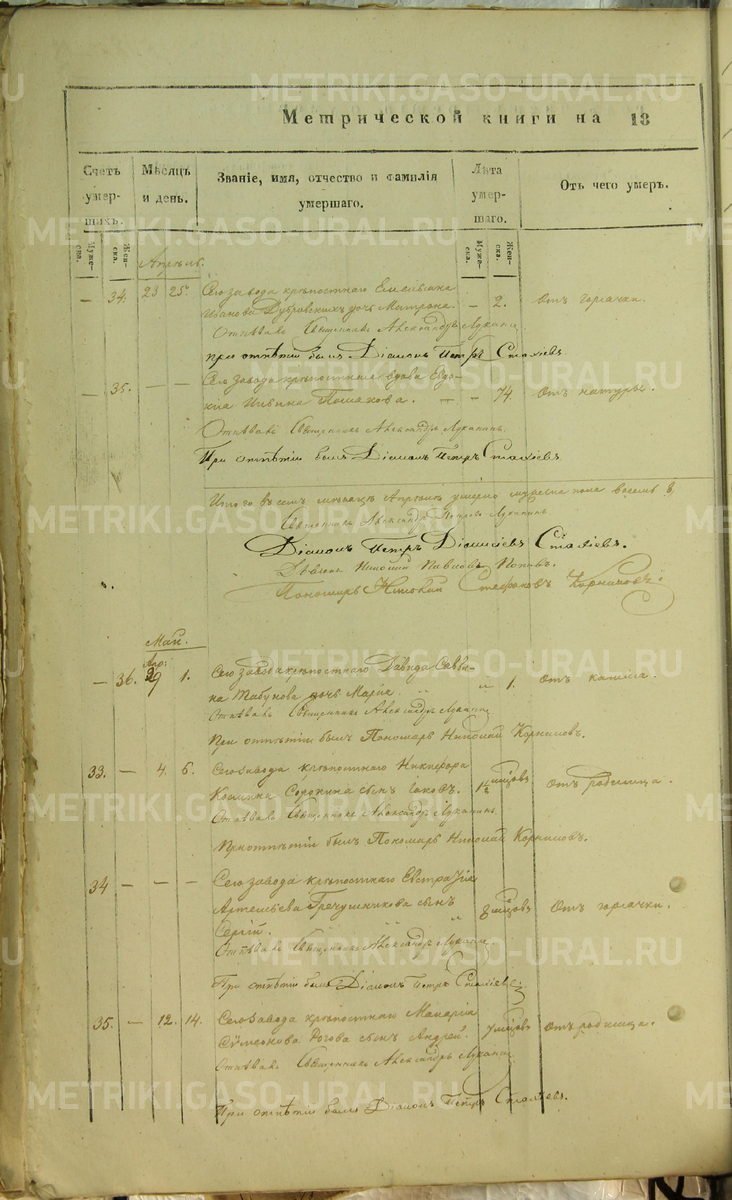 METRIKI.GASO-URAL.RU
Метрической книги на 18
Счетъ умершихъ.
Мѣсяцъ и день.
Званіе, имя, отчество и фамилія умершаго.
Лѣта умершаго.
Отъ чего умеръ.
Мужеска.
Женска.
Мужеска.
Женска.
Апрѣль.
— 34. 23 25. Сего завода крѣпостнаго Емельяна
Иванова Дубровскихъ дочь Матрона. — 2. Отъ горячки.
Отпѣвалъ Священникъ Александръ Луканинъ
при отпѣтіи былъ Діаконъ Петръ
— 35. — — Сего завода крѣпостная вдова Евдо-
кія — — 74 Отъ натуры.
Отпѣвалъ Священникъ Александръ Луканинъ.
При отпѣтіи былъ Діаконъ Петръ
Итого въ семъ мѣсяцѣ Апрѣлѣ умерло мужеска пола восемь 8,
Священникъ Александръ Петровъ Луканинъ
Діаконъ Петръ Діонисіевъ
Дьячекъ Николай Павловъ Поповъ.
Пономарь Николай Стефановъ Корниловъ.
Май.
Апр:
— 36. 29 1. Сего завода крѣпостнаго Давида Савви-
на Табукова дочь Марія. „ „ 1. Отъ кашля.
Отпѣвалъ Священникъ Александръ Луканинъ
При отпѣтіи былъ Пономарь Николай Корниловъ.
33. — 4. 6. Сего завода крѣпостнаго Никифора
Космина Сорокина сынъ Іаковъ. 1½ мѣсяцовъ Отъ родимца.
Отпѣвалъ Священникъ Александръ Луканинъ
При отпѣтіи былъ Пономарь Николай Корниловъ.
34 — — — Сего завода крѣпостнаго Евстратія
Артемьева Гречушникова сынъ 8 мѣсяцовъ Отъ горячки.
Сергій.
Отпѣвалъ Священникъ Александръ Луканинъ
При отпѣтіи былъ Діаконъ Петръ
35. — 12. 14. Сего завода крѣпостнаго Макарія
Симеонова Рогова сынъ Андрей. 7 мѣсяцовъ Отъ родимца.
Отпѣвалъ Священникъ Александръ Луканинъ.
При отпѣтіи былъ Діаконъ Петръ